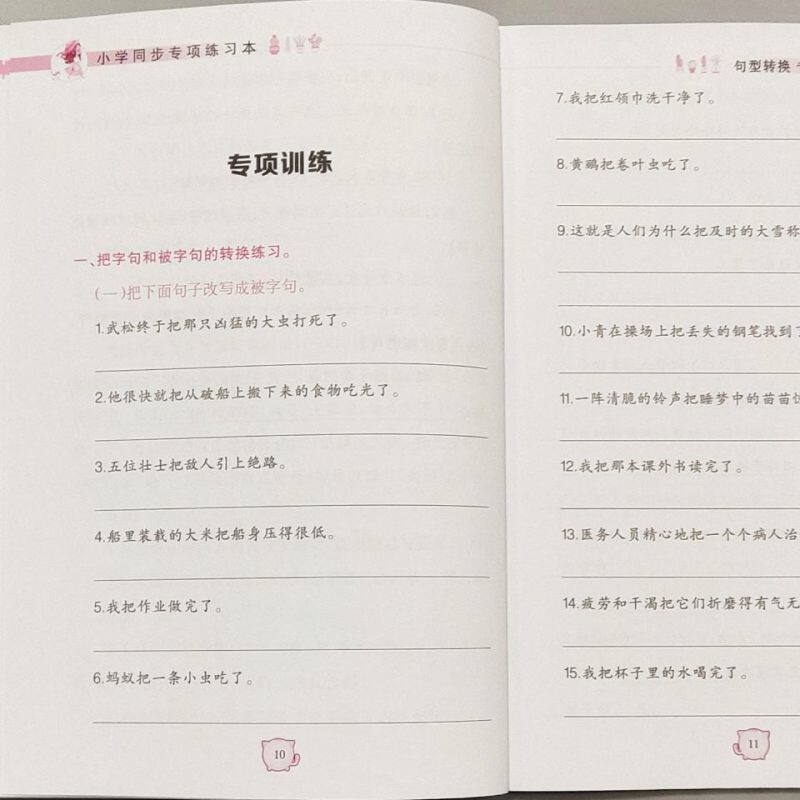 小学同步专项练习本
专项训练
一、把字句和被字句的转换练习。
(一)把下面句子改写成被字句。
1.武松终于把那只凶猛的大虫打死了。
2.他很快就把从破船上搬下来的食物吃光了。
3.五位壮士把敌人引上绝路。
4.船里装载的大米把船身压得很低。
5.我把作业做完了。
6.蚂蚁把一条小虫吃了。
10
句型转换
7.我把红领巾洗干净了。
8.黄鹂把卷叶虫吃了。
9.这就是人们为什么把及时的大雪称
10.小青在操场上把丢失的钢笔找到了
11.一阵清脆的铃声把睡梦中的苗苗惊
12.我把那本课外书读完了。
13.医务人员精心地把一个个病人治
14.疲劳和干渴把它们折磨得有气无
15.我把杯子里的水喝完了。
11